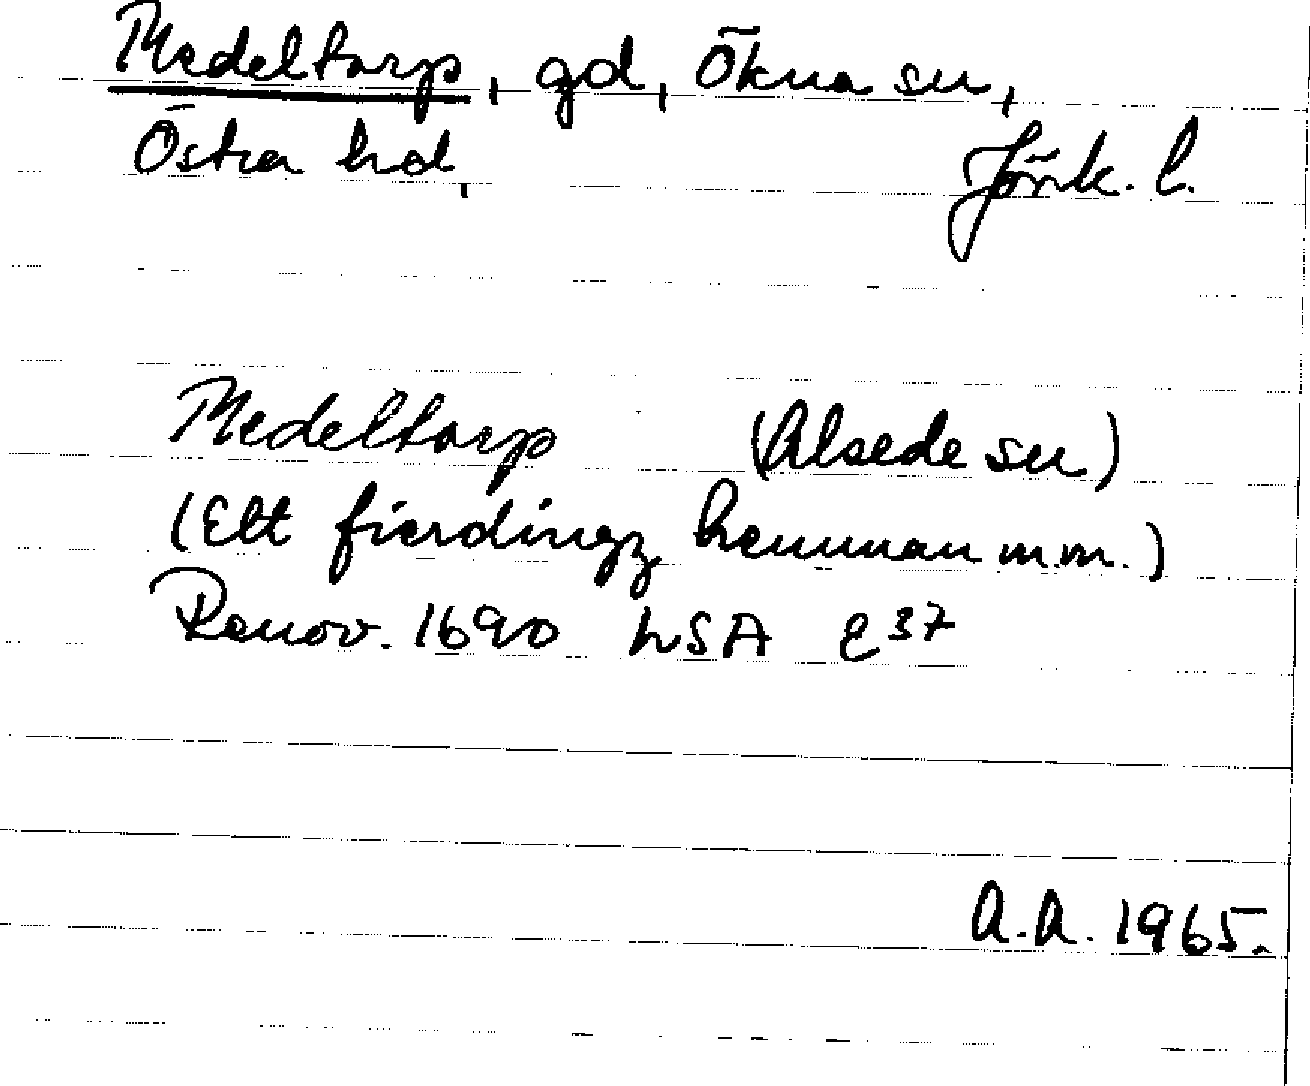 Medeltorp, gd, Ökna sn,
Östra hd, Jönk. l.
Medeltorp (Alsede sn)
(Ett fierdingz hemman m.m.)
Renov. 1690 LSA E37
A.A. 1965.